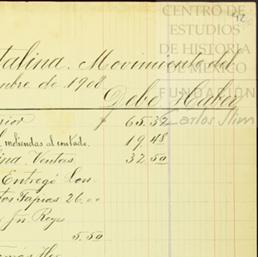 CENTRO DE
ESTUDIOS
DE HISTORIA
DE MÉXICO
FUNDACIÓN
Carlos Slim
talina. Movimiento del
mbre de 1908
Debe Haber
rior $ 65.32
moliendas al contado. 19.48
ina. Ventas 32.50
Entregó Son
tos Tapias 26.00
Jn. Reyes
5.50